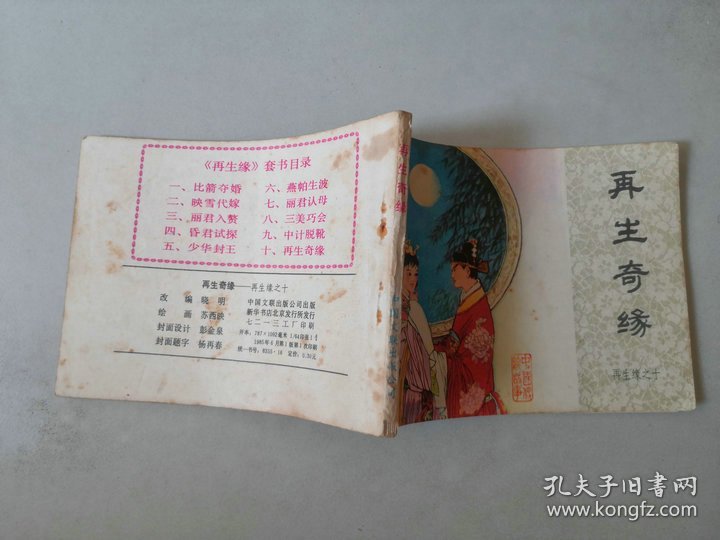 《再生缘》套书目录
一、比箭夺婚 六、燕帕生波
二、映雪代嫁 七、丽君认母
三、丽君入赘 八、三美巧会
四、昏君试探 九、中计脱靴
五、少华封王 十、再生奇缘
再生奇缘——再生缘之十
改编 晓明
绘画 苏西映
封面设计 彭金泉
封面题字 杨再春
中国文联出版公司出版
新华书店北京发行所发行
七二一三工厂印刷
开本：787×1092毫米 1/64印张1
1985年6月第1版第1次印刷
统一书号：8355·18 定价：0.30元
再生奇缘
中国文联出版公司
再生奇缘
再生缘之十
孔夫子旧书网
www.kongfz.com